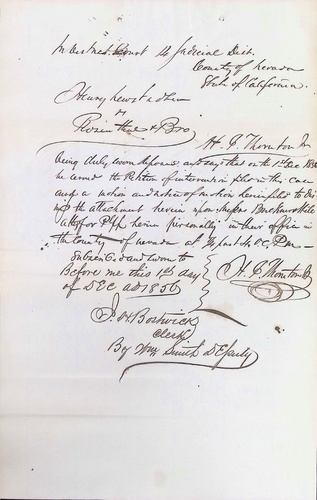 In District Court 14 Judicial Dist.
County of Nevada
State of California.
Henry
vs
Rosenthal & Bro
H. I. Thornton Jr
being duly sworn deposes and says that on the 1st Dec 1856
he served the Petition of intervention filed in the case
and a motion and notice of motion herein filed to Dis
the attachment herein upon Messrs
attys for Plff herein personally in their office in
the County of Nevada at 4 O.C. P.M.
Subscribed and sworn to
Before me this 1st day
of DEC AD 1856
H. I. Thornton Jr
J. H. Bostwick
Clerk
By Wm Smith Deputy